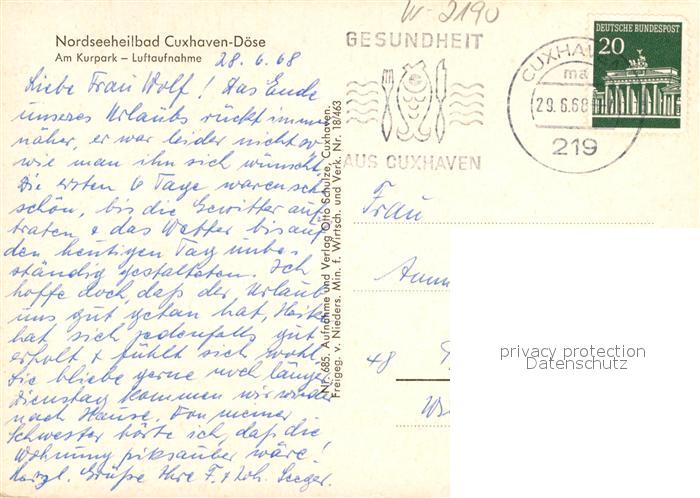 W-2190
Nordseeheilbad Cuxhaven-Döse
Am Kurpark – Luftaufnahme
28.6.68
Liebe Frau Wolf! Das Ende
unseres Urlaubs rückt immer
näher, er war leider nicht so
wie man ihn sich wünscht.
Die ersten 6 Tage waren sehr
schön, bis die Gewitter auf-
traten + das Wetter bis auf
den heutigen Tag unbe-
ständig gestalteten. Ich
hoffe doch, daß der Urlaub
uns gut getan hat, Heike
hat sich jedenfalls gut
erholt + fühlt sich wohl.
Sie bliebe gerne noch länger.
Dienstag kommen wir wieder
nach Hause. Von meiner
Schwester hörte ich, daß die
Wohnung piksauber wäre!
Herzl. Grüße Ihre F. + Joh. Seeger.
Nr. 685. Aufnahme und Verlag Otto Schulze, Cuxhaven.
Freigeg. v. Nieders. Min. f. Wirtsch. und Verk. Nr. 18/463
GESUNDHEIT
AUS CUXHAVEN
CUXHAV
ma
29.6.68
219
DEUTSCHE BUNDESPOST
20
Frau
48
privacy protection
Datenschutz